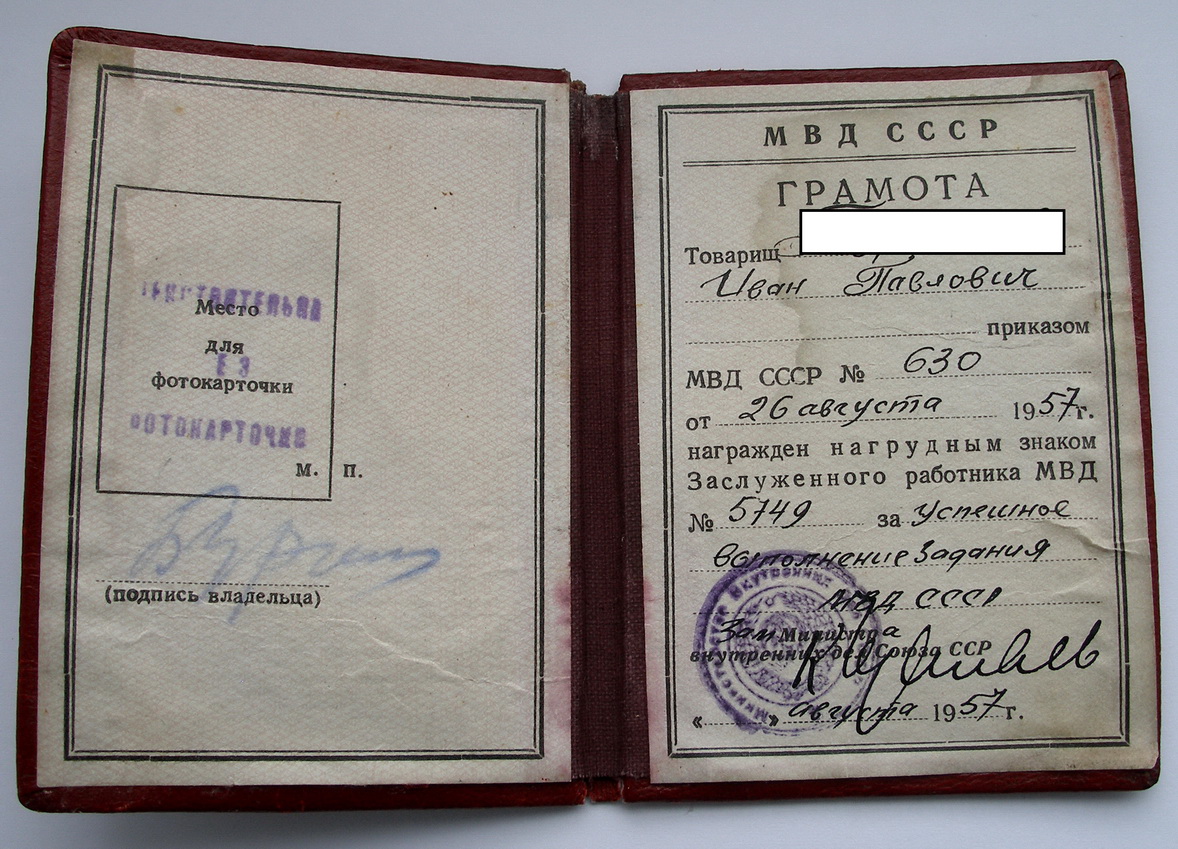 Место
для
фотокарточки
ФОТОКАРТОЧКИ
М. П.
(подпись владельца)
МВД СССР
ГРАМОТА
Товарищ
Иван Павлович
приказом
МВД СССР № 630
от 26 августа 1957г.
награжден нагрудным знаком
Заслуженного работника МВД
№ 5749 за успешное
выполнение задания
МВД СССР
Зам Министра
внутренних дел Союза ССР
« » августа 1957г.